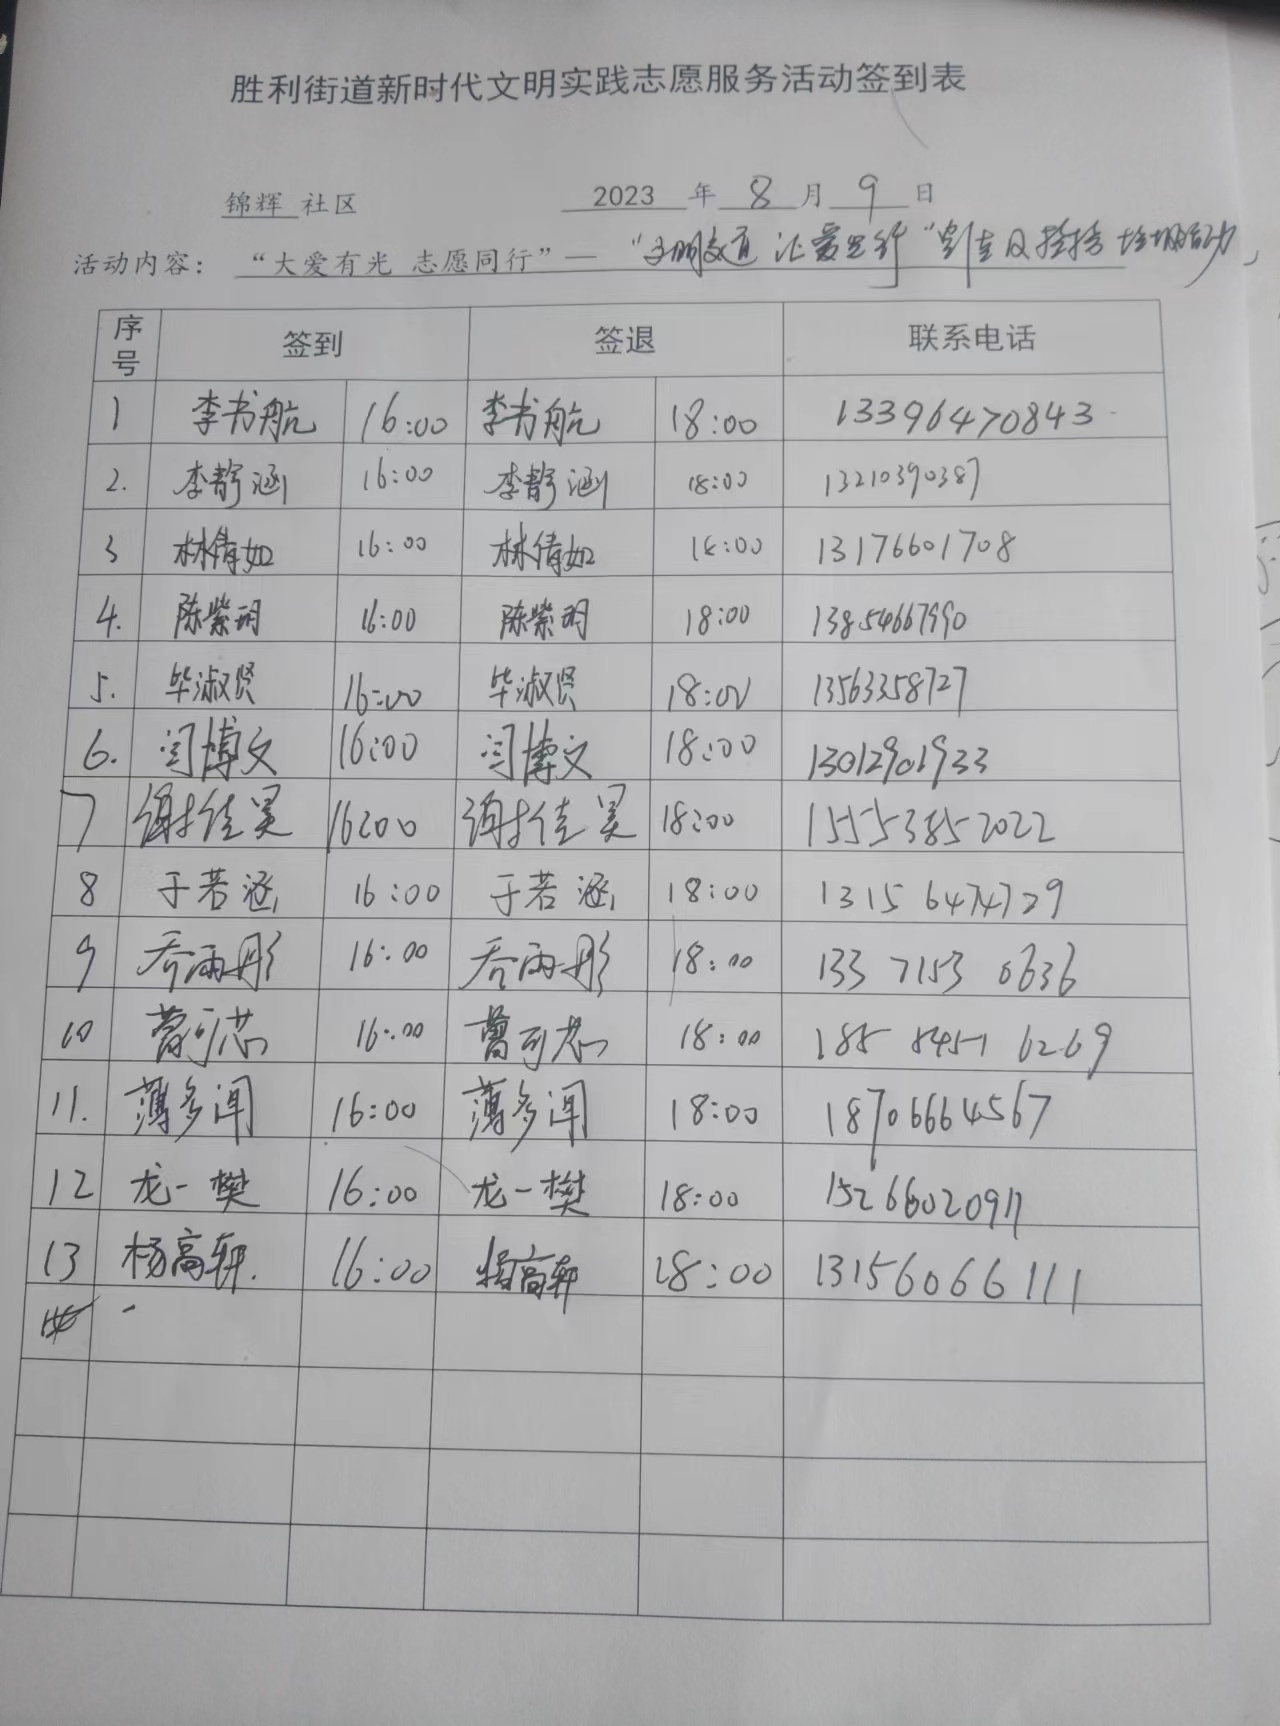 胜利街道新时代文明实践志愿服务活动签到表
锦辉 社区 2023 年 8 月 9 日
活动内容: “大爱有光 志愿同行”— “文明交通 让爱先行”
序号 签到 签退 联系电话
1 李书航 16:00 李书航 18:00 13396470843
2. 李静涵 16:00 李静涵 18:00 13210390387
3 林倩如 16:00 林倩如 18:00 13176601708
4. 陈紫玥 16:00 陈紫玥 18:00 13854667990
5. 毕淑贤 16:00 毕淑贤 18:00 13563358727
6. 闫博文 16:00 闫博文 18:00 13012901933
7 谢佳昊 16:00 谢佳昊 18:00 15553852022
8 于若涵 16:00 于若涵 18:00 13156474729
9 乔雨彤 16:00 乔雨彤 18:00 133 7153 0636
10 葛可芯 16:00 葛可芯 18:00 6269
11. 薄多闻 16:00 薄多闻 18:00 18706664567
12 龙一樊 16:00 龙一樊 18:00 15266020911
13 杨高轩. 16:00 杨高轩 18:00 13156066111